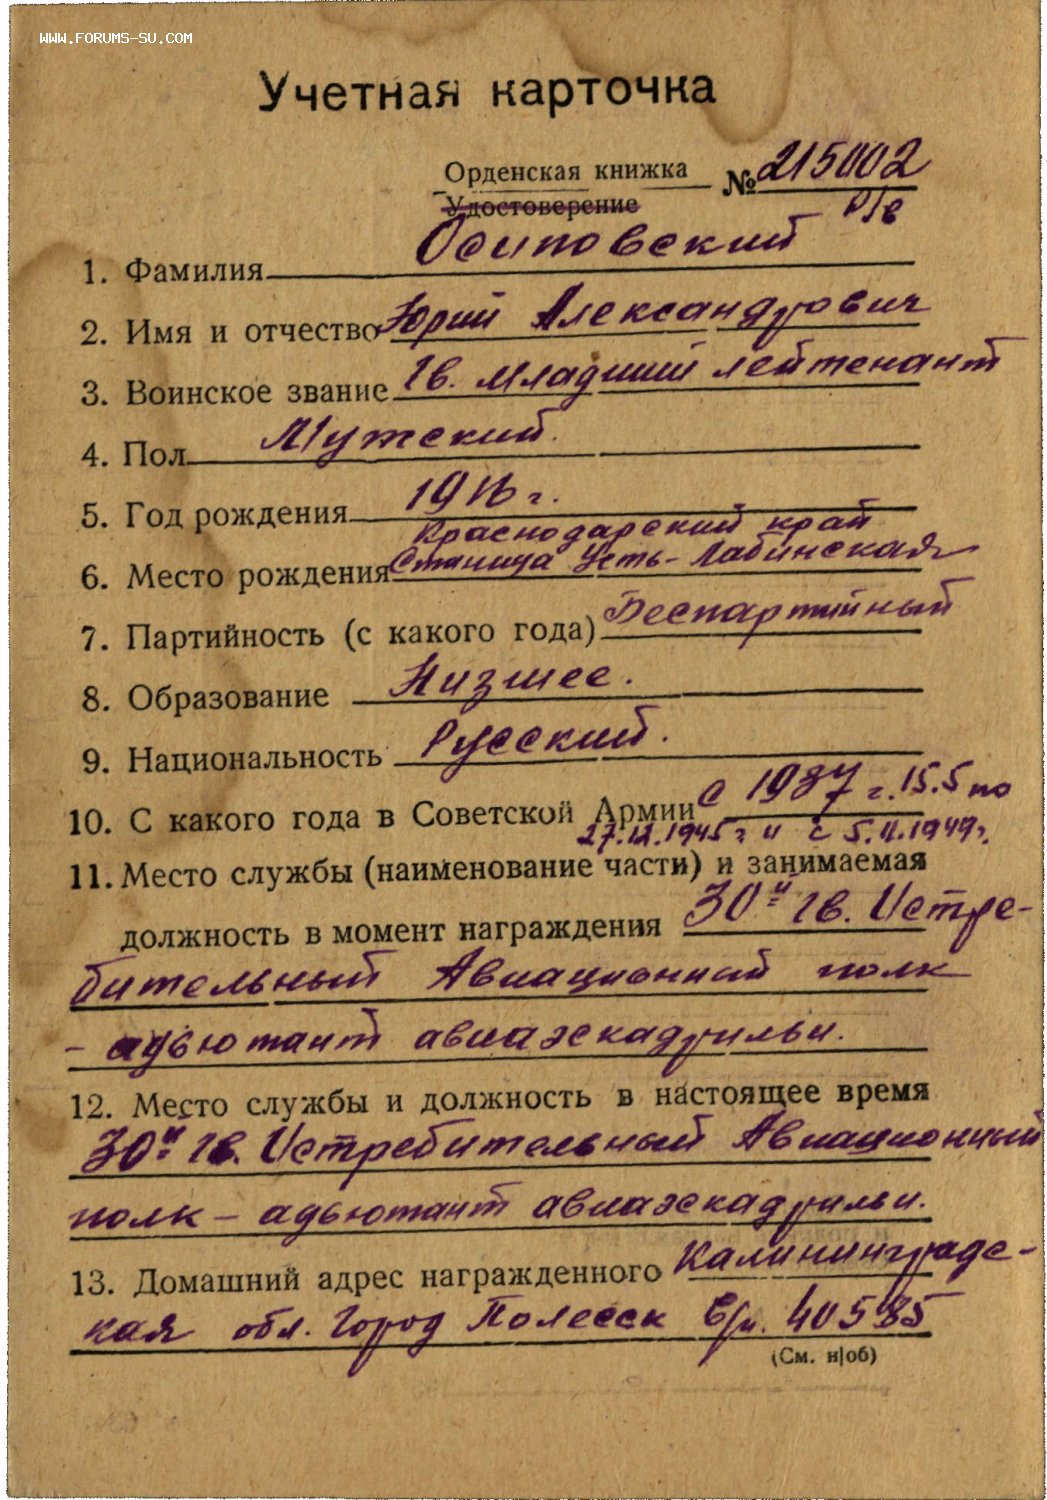 WWW.FORUMS-SU.COM
Учетная карточка
Орденская книжка № 215002
Удостоверение
1. Фамилия Осиповский
2. Имя и отчество Юрий Александрович
3. Воинское звание Гв. Младший лейтенант
4. Пол Мужской.
5. Год рождения 1916 г.
Краснодарский край
6. Место рождения Станица Усть-Лабинская
7. Партийность (с какого года) Беспартийный
8. Образование Низшее.
9. Национальность Русский.
10. С какого года в Советской Армии С 1937 г. 15.5 по
27.12.1945 г и с 5.11.1949 г.
11. Место службы (наименование части) и занимаемая
должность в момент награждения 30й Гв. Истре-
бительный Авиационный полк
- адъютант авиаэскадрильи.
12. Место службы и должность в настоящее время
30й Гв. Истребительный Авиационный
полк - адъютант авиаэскадрильи.
13. Домашний адрес награжденного Калининградс-
кая обл. Город Полесск в/ч. 40585
(См. н|об)